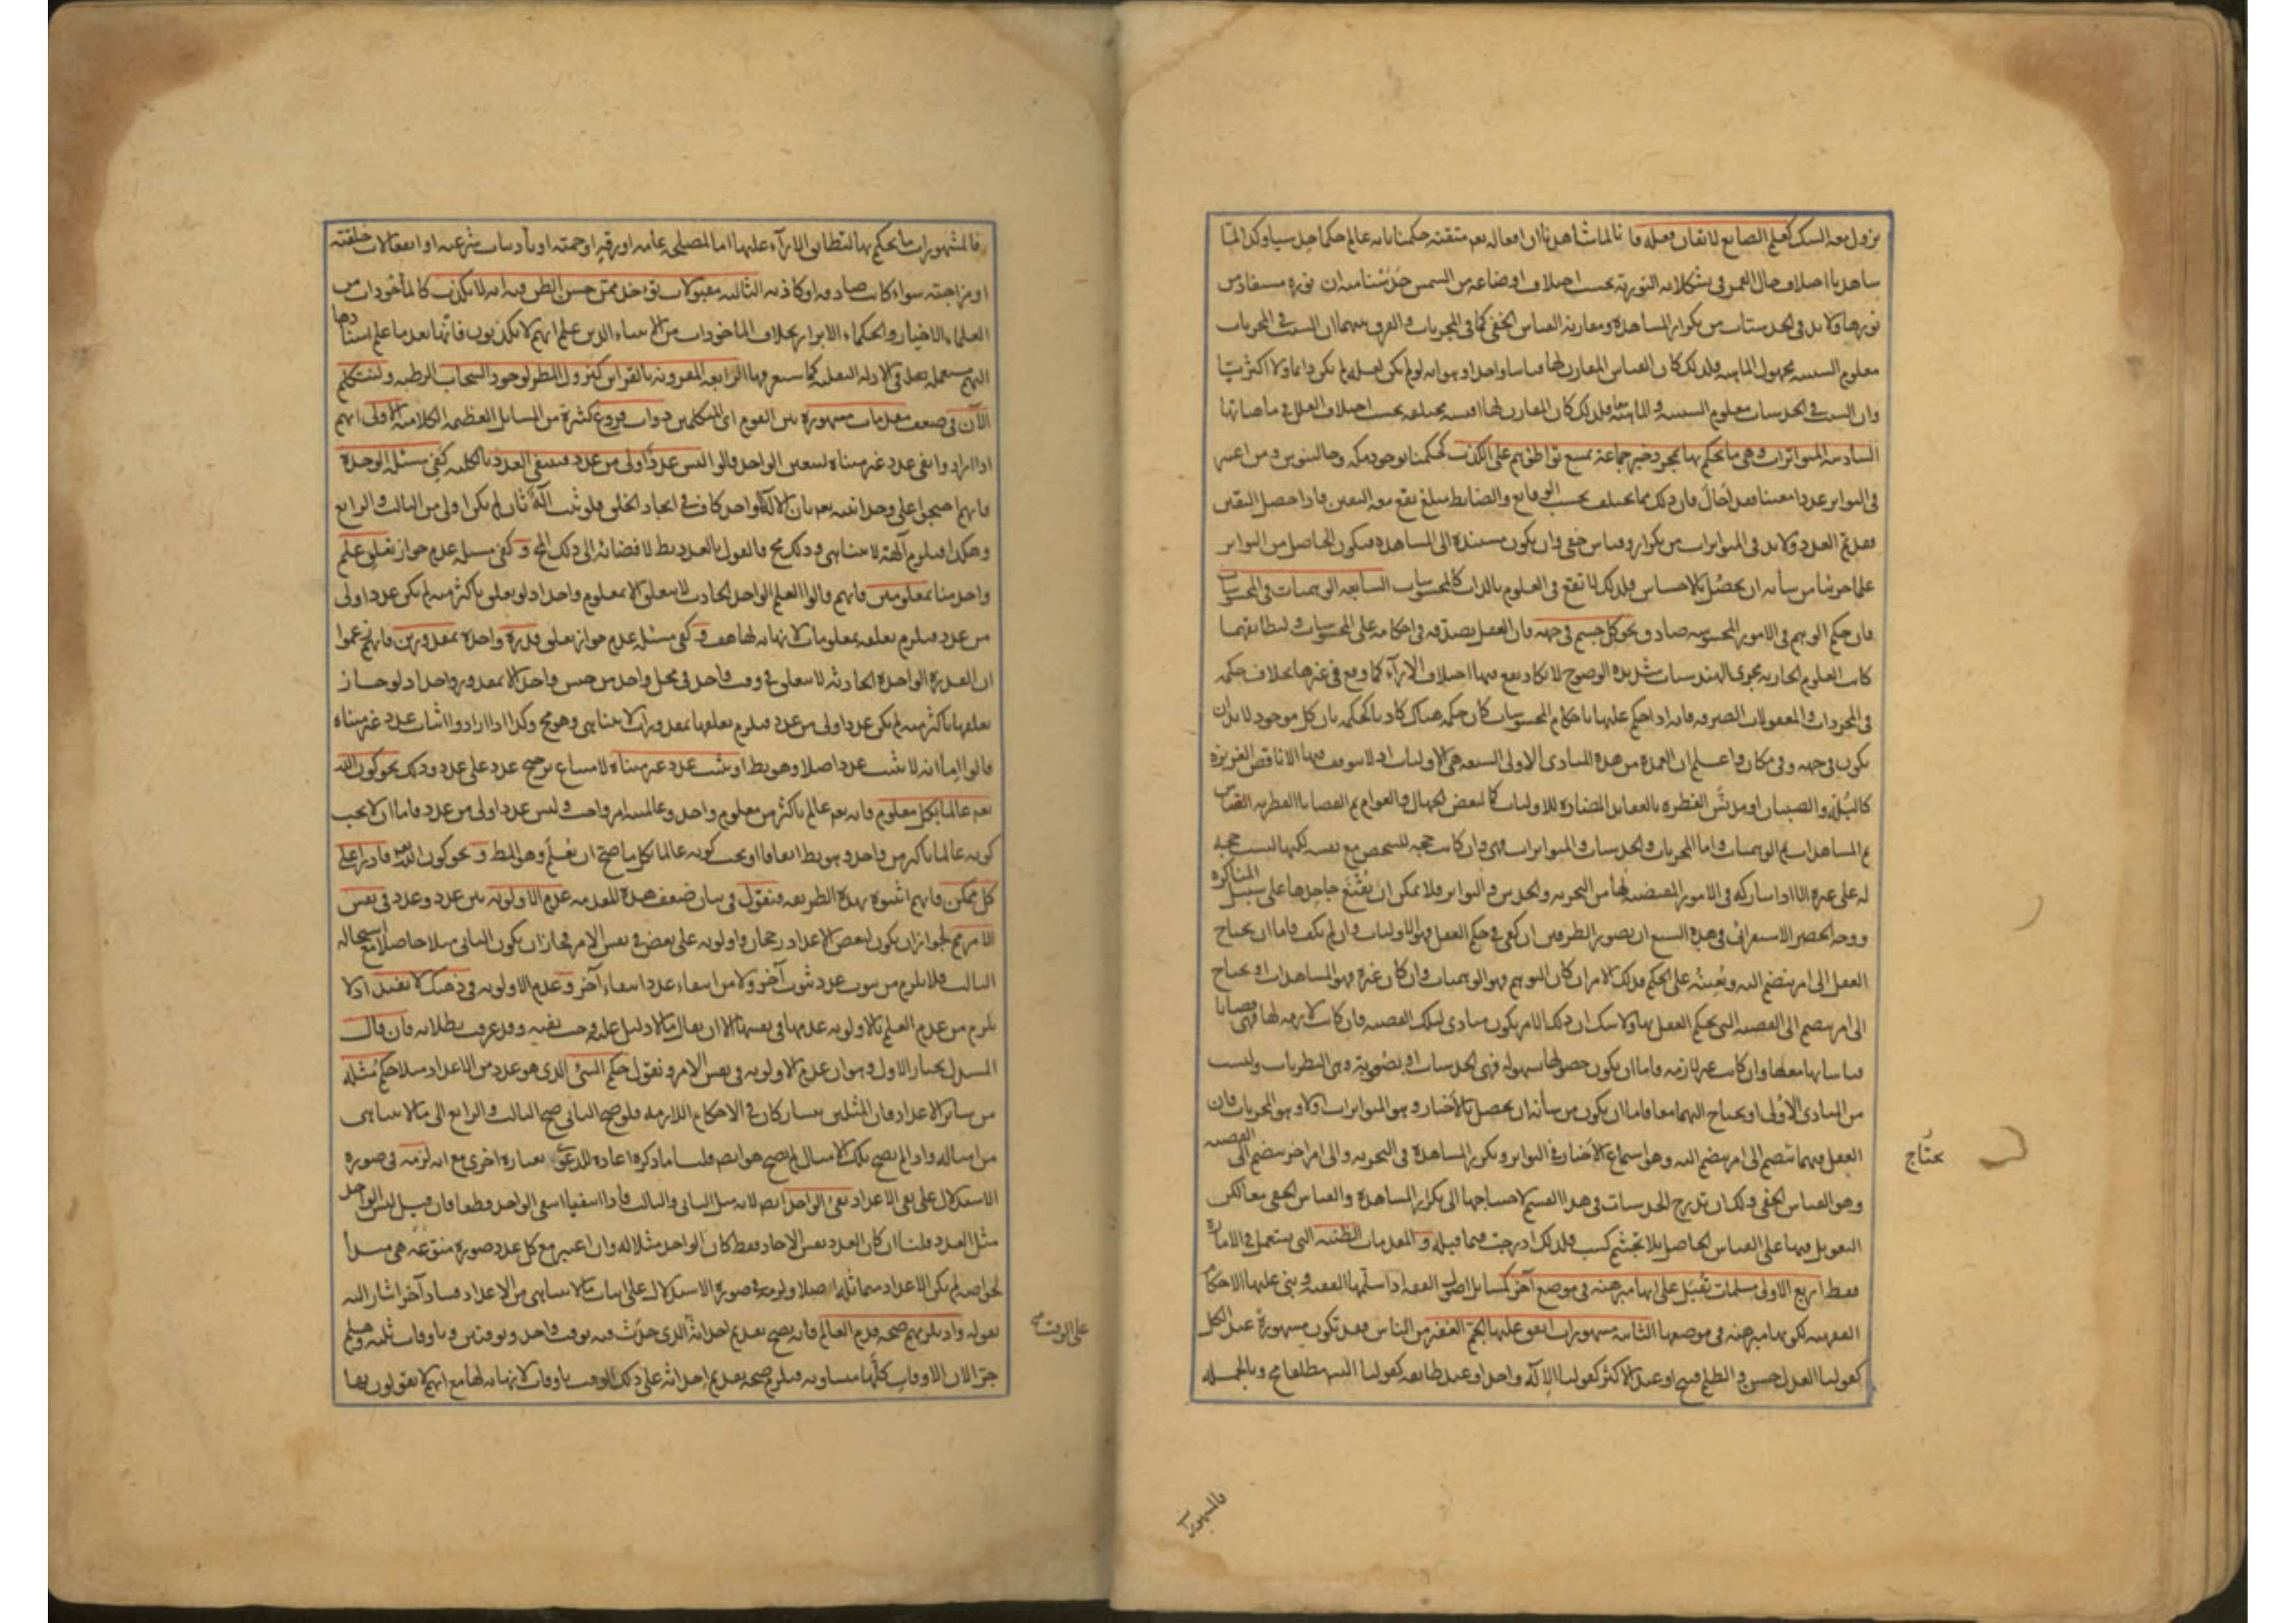 يزول معه الشك كعلم الصانع لاتقان فعله فانا لما شاهدنا ان افعاله تعالى متقنة حكمنا بانه عالم حكما حدسيا وكذا لما
شاهدنا اختلاف حال القمر في تشكلاته النورية بحسب اختلاف اوضاعه من الشمس حدسنا منه ان نوره مستفاد من
نورها ولا بد في الحدسيات من تكرار المشاهدة ومقارنة القياس الخفي كما في المجربات والفرق بينهما ان السبب في المجربات
معلوم السببية مجهول الماهية فلذلك كان القياس المقارن لها قياسا واحدا وهو انه لو لم يكن لعلة لم يكن دائما ولا اكثريا
وان السبب في الحدسيات معلوم السببية والماهية معا فلذلك كان المقارن لها اقيسة مختلفة بحسب اختلاف العلل في ماهياتها
السادسة المتواترات وهي ما يحكم بها بمجرد خبر جماعة يمتنع تواطؤهم على الكذب كحكمنا بوجود مكة وجالينوس ومن اعتبر
في التواتر عددا معينا فقد احال فان ذلك مما يختلف بحسب الوقايع والضابط مبلغ يقع معه اليقين فاذا حصل اليقين
فقد تم العدد ولا بد في المتواترات من تكرار وقياس خفي وان يكون مستندة الى المشاهدة فيكون الحاصل من التواتر
علما جزئيا من شأنه ان يحصل بالاحساس فلذلك لا تقع في العلوم بالذات كالمحسوسات السابعة الوهميات في المحسوسات
فان حكم الوهم في الامور المحسوسة صادق نحو كل جسم في جهة فان العقل يصدقه في احكامه على المحسوسات ولتطابقهما
كانت العلوم الجارية مجرى الهندسيات شديدة الوضوح لا يكاد يقع فيها اختلاف الآراء كما وقع في غيرها بخلاف حكمه
في المجردات والمعقولات الصرفة فانه اذا حكم عليها باحكام المحسوسات كان حكمه هناك كاذبا كحكمه بان كل موجود لا بد ان
يكون في جهة وفي مكان واعلم ان العمدة من هذه المبادى الاولى السبعة هي الاوليات اذ لا يتوقف فيها الا ناقص الغريزة
كالبله والصبيان او مدنس الفطرة بالعقايد المضادة للاوليات كما لبعض الجهال والعوام ثم القضايا الفطرية القياس
ثم المشاهدات ثم الوهميات واما المجربات والحدسيات والمتواترات فهي وان كانت حجة للشخص مع نفسه لكنها ليست حجة
له على غيره الا اذا شاركه في الامور المقتضية لها من التجربة والحدس والتواتر فلا يمكن ان يقنع جاحدها على سبيل المناكرة
ووجه الحصر الاستقرائي في هذه السبع ان تصور الطرفين ان كفى في حكم العقل فهو الاوليات وان لم يكف فاما ان يحتاج
العقل الى امر ينضم اليه ويعينه على الحكم فذلك الامر ان كان التوهم فهو الوهميات وان كان غيره فهو المشاهدات او يحتاج
الى امر ينضم الى القضية التي يحكم العقل بها ولا شك ان ذلك الامر يكون مبادى لتلك القضية فان كانت لازمة لها فهي قضايا
قياساتها معها وان كانت غير لازمة فاما ان يكون حصولها بسهولة فهي الحدسيات او بصعوبة وهي النظريات وليست
من المبادى الاولى او يحتاج اليهما معا فاما ان يكون من شأنه ان يحصل بالأخبار وهو المتواترات او لا وهو المجربات فان
العقل فيهما يحتاج الى امر ينضم اليه وهو استماع الاخبار في التواتر وتكرر المشاهدة في التجربة والى امر اخر ينضم الى القضية
وهو القياس الخفي ولك ان تدرج الحدسيات في هذا القسم لاحتياجها الى تكرار المشاهدة والقياس الخفي معا لكن
التعويل فيها على القياس الحاصل بلا تجشم كسب فلذلك ادرجت فيما قبله والمقدمات الظنية التي يستعمل في الامارة
فقط اربع الاولى مسلمات تقبل على انها مبرهنة في موضع آخر كمسايل اصول الفقه اذا سلمها الفقيه وبنى عليها الاحكام
الفقهية لكونها مبرهنة في موضعها الثانية مشهورات اتفق عليها الجم الغفير من الناس فقد تكون مشهورة عند الكل
كقولنا العدل حسن والظلم قبيح او عند الاكثر كقولنا الاله واحد او عند طايفة كقولنا التس مطلقا مح وبالجملة
يحتاج
فالمشهورات
فالمشهورات ما يحكم بها لتطابق الآراء عليها اما لمصلحة عامة او رقة او حمية او تأديبات شرعية او انفعالات خلقية
او مزاجية سواء كانت صادقة او كاذبة الثالثة مقبولات تؤخذ ممن حسن الظن فيه انه لا يكذب كالمأخوذات من
العلماء الاخيار والحكماء الابرار بخلاف المأخوذات من الانبياء الذين علم انهم لا يكذبون فانها بعد ما علم استنادها
اليهم يستعمله في الادلة النقلية كما ستعرفها الرابعة المقرونة بالقراين كنزول المطر لوجود السحاب الرطب ولنتكلم
الآن في ضعف مقدمات مشهورة بين القوم اى المتكلمين ذوات فروع كثيرة من المسايل العظيمة الكلامية الاولى انهم
اذا ارادوا نفي عدد غير متناه لتعين الواحد قالوا ليس عدد اولى من عدد فينتفي العدد بالكلية كفي مسئلة الوحدة
فانهم احتجوا على وحدانيته تعالى بان الاله الواحد كاف في ايجاد الخلق فلو ثبت اله ثان لم يكن اولى من الثالث والرابع
وهكذا فيلزم آلهة لا يتناهى وذلك مح فالقول بالعدد بط لافضائه الى ذلك المح و كفي مسئلة عدم جواز تعلق علم
واحد منا بمعلومين فانهم قالوا العلم الواحد الحادث لا يتعلق الا بمعلوم واحد اذ لو تعلق باكثر منه لم يكن عدد اولى
من عدد فيلزم تعلقه بمعلومات لا نهاية لها هف و كفي مسئلة عدم جواز تعلق قدرة واحدة بمقدورين فانهم زعموا
ان القدرة الواحدة الحادثة لا يتعلق في وقت واحد في محل واحد من جنس واحد الا بمقدور واحد اذ لو جاز
تعلقها باكثر منه لم يكن عدد اولى من عدد فيلزم تعلقها بمقدورات لا يتناهى وهو مح وكذا اذا ارادوا اثبات عدد غير متناه
قالوا اما انه لا يثبت عدد اصلا وهو بط او يثبت عدد غير متناه لامتناع ترجح عدد على عدد وذلك نحو كون الله
تعالى عالما بكل معلوم فانه تعالى عالم باكثر من معلوم واحد وعالميته امر واجب وليس عدد اولى من عدد فاما ان لا يجب
كونه عالما باكثر من واحد وهو بط اتفاقا او يجب كونه عالما بكل ما صح ان يعلم وهو المط و نحو كون الله تعالى قادرا على
كل ممكن فانهم اثبتوه بهذه الطريقة فنقول في بيان ضعف هذه المقدمة عدم الاولوية بين عدد وعدد في نفس
الامر مم لجواز ان يكون لبعض الاعداد رجحان واولوية على بعض في نفس الامر فجاز ان يكون الثاني مثلا حاصلا مع استحالة
الثالث فلا يلزم من ثبوت عدد ثبوت آخر ولا من انتفاء عدد انتفاء آخر وعدم الاولوية في ذهنك لا يفيد اذ لا
يلزم من عدم العلم بالاولوية عدمها في نفسها الا ان يقال ما لا دليل عليه وجب نفيه وقد عرفت بطلانه فان قال
المستدل نختار الاول وهو ان عدم الاولوية في نفس الامر ونقول حكم الشئ الذي هو عدد من الاعداد مثلا حكم مثله
من ساير الاعداد فان المثلين يتشاركان في الاحكام اللازمة فلو صح الثاني صح الثالث والرابع الى ما لا يتناهى
من امثاله واذا لم يصح تلك الامثال لم يصح هو ايضا قلنا ما ذكره اعادة للدعوى بعبارة اخرى مع انه لزمه في صورة
الاستدلال على نفي الاعداد نفي الواحد ايضا لانه مثل الثاني والثالث فاذا انتفيا انتفى الواحد قطعا فان قيل ليس الواحد
مثل العدد قلنا ان كان العدد نفس الآحاد فقط كان الواحد مثلا له وان اعتبر مع كل عدد صورة منوعة هي مبدأ
لخواصه لم يكن الاعداد متماثلة اصلا ولزمه في صورة الاستدلال على اثبات ما لا يتناهى من الاعداد فساد آخر اشار اليه
بقوله واذ يلزمهم صحة قدم العالم فانه يصح تقديم احداثه الذي حدث فيه بوقت واحد وبوقتين وباوقات ثلثة وهلم
جرا لان الاوقات كلها متساوية فيلزم صحة تقديم احداثه على ذلك الوقت باوقات لا نهاية لها مع انهم لا يقولون بها
على الوقت